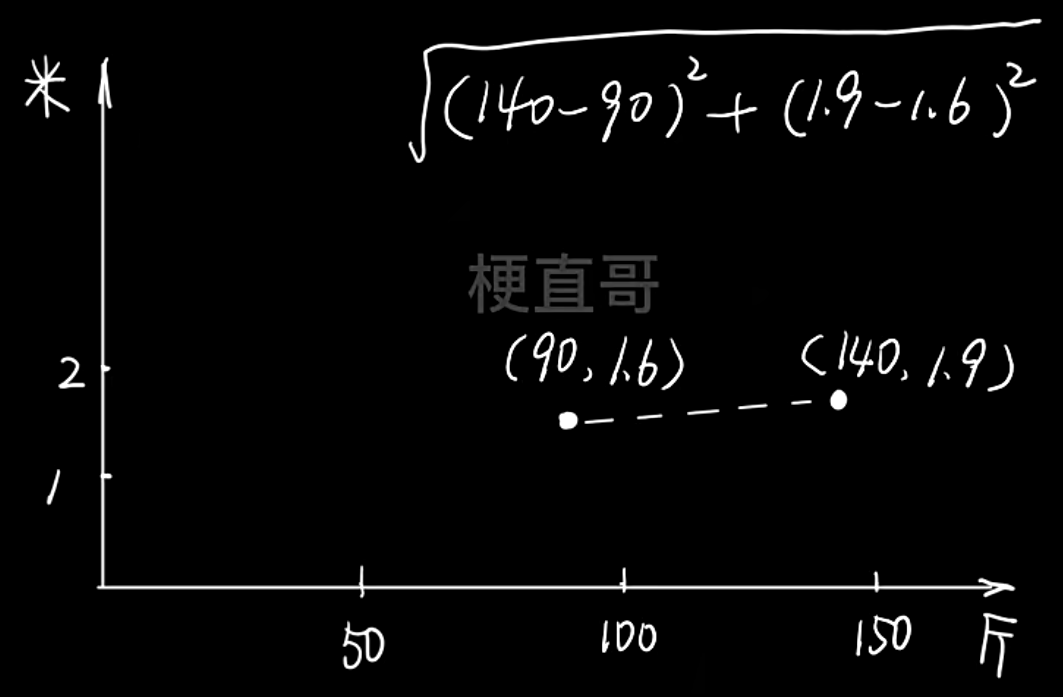 米
√(140-90)²+(1.9-1.6)²
梗直哥
(90, 1.6) (140, 1.9)
2
1
50 100 150 斤